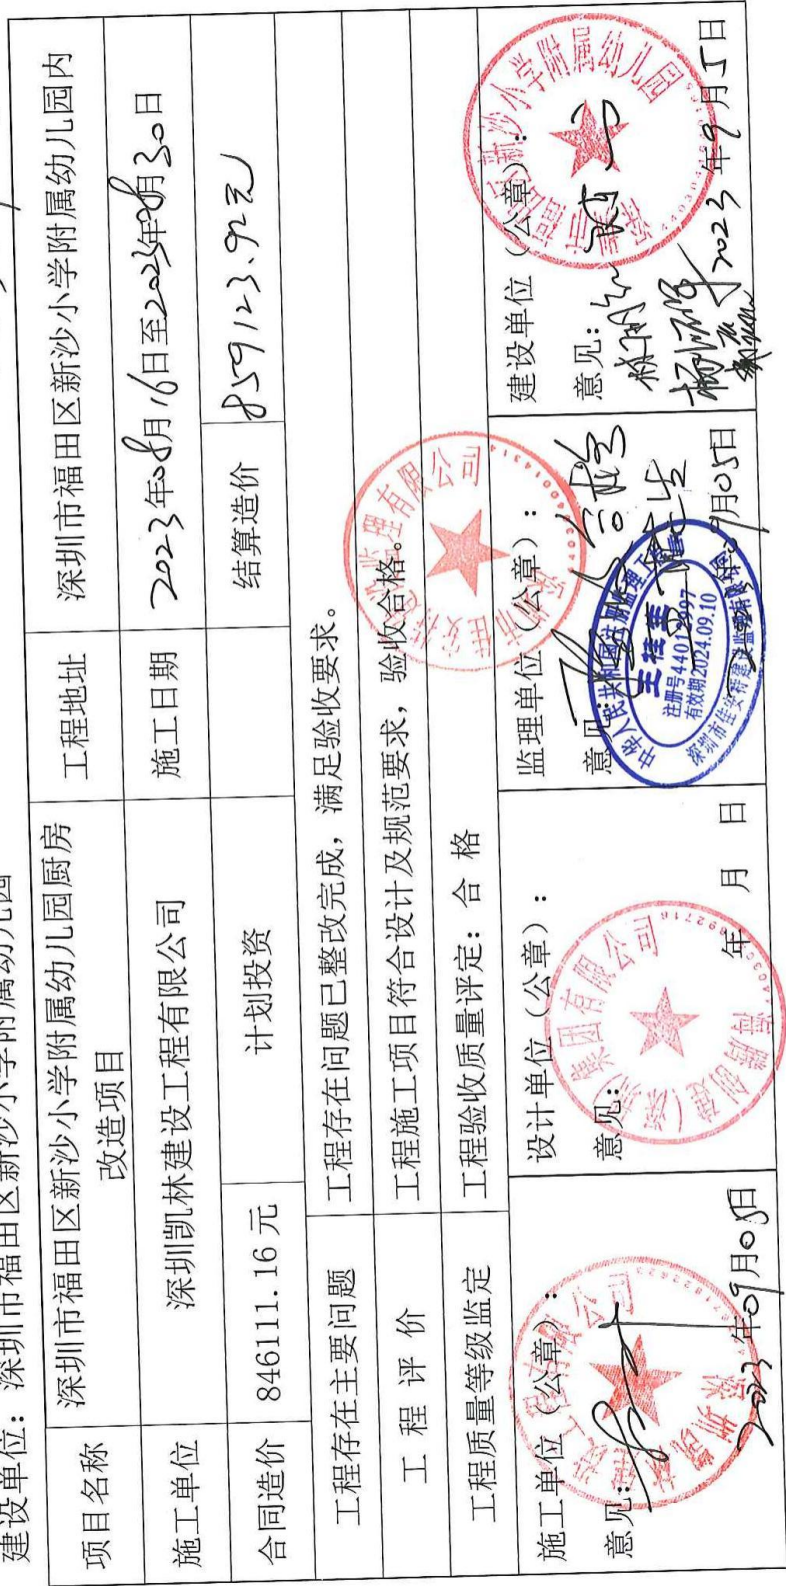 建设单位：深圳市福田区新沙小学附属幼儿园
项目名称 深圳市福田区新沙小学附属幼儿园厨房改造项目 工程地址 深圳市福田区新沙小学附属幼儿园内
施工单位 深圳凯林建设工程有限公司 施工日期 2023年08月16日至2023年08月30日
合同造价 846111.16元 计划投资 结算造价 859123.92元
工程存在主要问题 工程存在问题已整改完成，满足验收要求。
工程评价 工程施工项目符合设计及规范要求，验收合格。
工程质量等级监定 工程验收质量评定：合格
施工单位（公章）：
意见：
2023年09月05日
设计单位（公章）：
意见：
年 月 日
监理单位（公章）：
意见：
中华人民共和国注册监理工程师
王桂生
有效期2024.09.10
09月05日
建设单位（公章）：
意见：
2023年9月5日